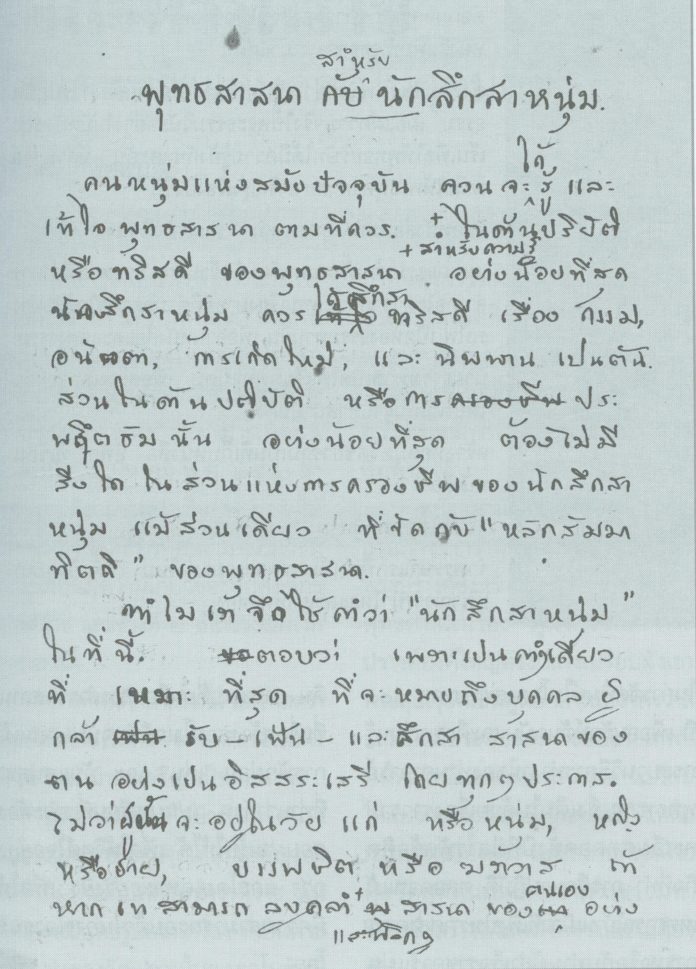 สำหรับ
พุทธสาสนา กับ นักสึกสาหนุ่ม.
ได้
คนหนุ่มแห่งสมัยปัจจุบัน ควนจะรู้ และ
เข้าใจ พุทธสาสนา ตามที่ควร. ในด้านปริยัติ
+ สำหรับความรู้
หรือทริสดี ของพุทธสาสนา อย่างน้อยที่สุด
ได้สึกสา
นักสึกสาหนุ่ม ควร ทริสดี เรื่อง กัมม,
อนัตตา, การเกิดใหม่, และ นิพพาน เปนต้น.
ส่วนในด้านปติบัติ หรือการครองชีพ ประ
พรึตธัมนั้น อย่างน้อยที่สุด ต้องไม่มี
สิ่งใด ในส่วนแห่งการครองชีพของนักสึกสา
หนุ่ม แม้ส่วนเดียว ที่ขัดกับ "หลักสัมมา
ทิตถิ" ของพุทธสาสนา.
ทำไมเราจึงใช้คำว่า "นักสึกสาหนุ่ม"
ในที่นี้. ตอบว่า เพราะเปนคำเดียว
ที่ เหมาะ ที่สุด ที่จะหมายถึงบุคคล ผู้
กล้า รับ - ฟัง - และสึกสา สาสนาของ
ตน อย่างเป็นอิสสระเสรี โดยทุกๆ ประการ.
ไม่ว่าผู้นั้นจะอยู่ในวัย แก่ หรือหนุ่ม, หญิง
หรือชาย, บรรพชิต หรือ ฆราวาส ถ้า
ตนเอง
หาก เขาสามารถ ลูบคลำ สาสนาของ อย่าง
และเลือก